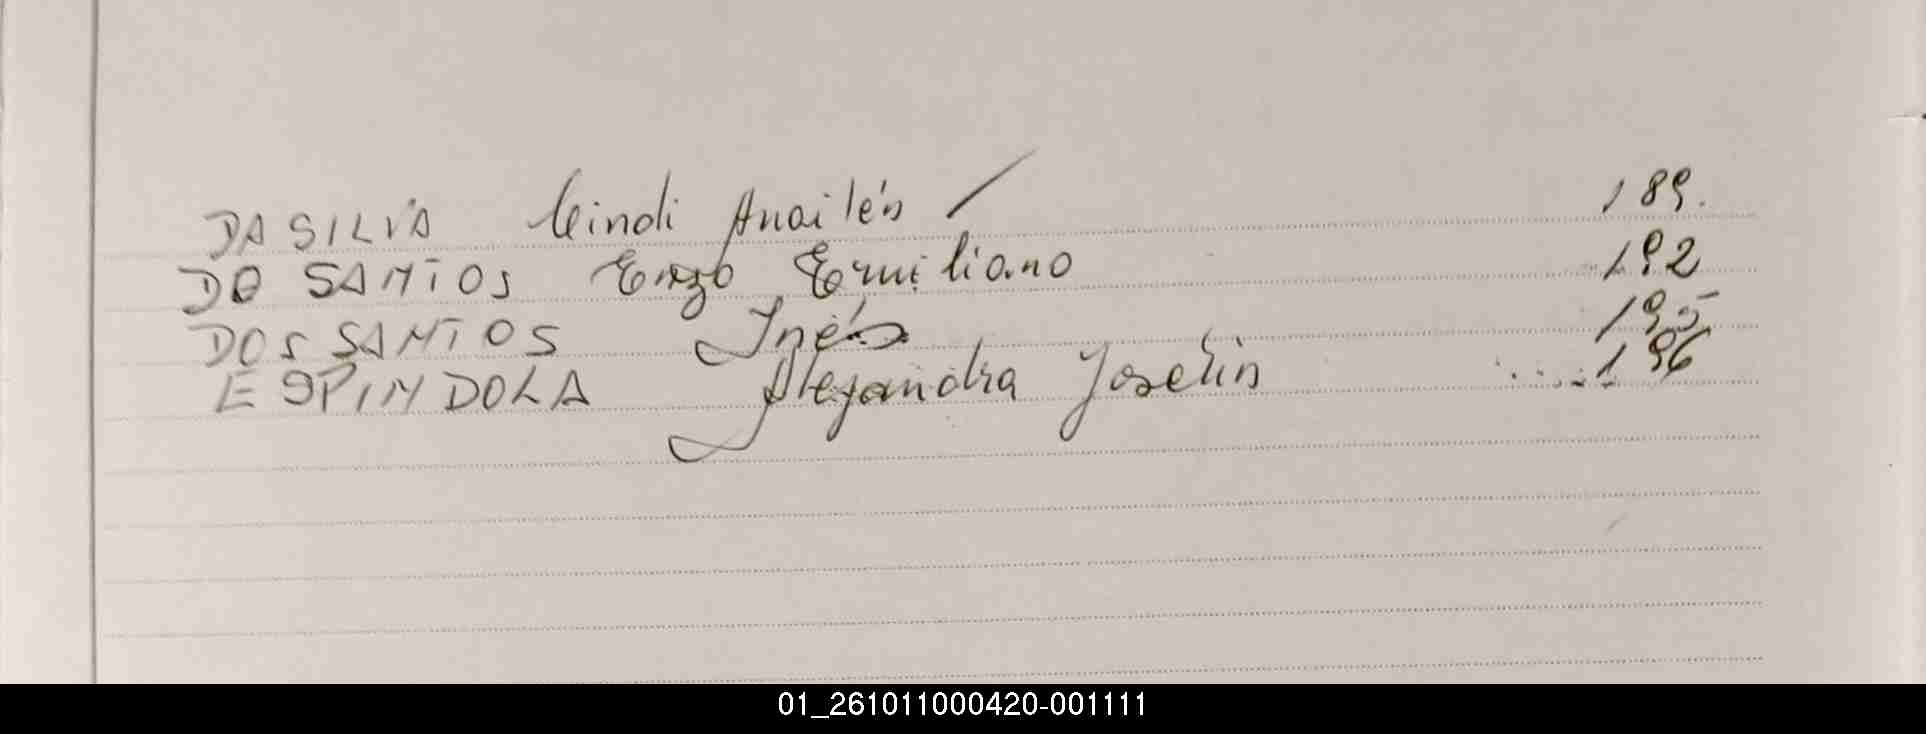 DA SILVA Cindi Anailén 189.
DO SANTOS Enzo Emiliano 192
DOS SANTOS Inés 195
ESPINDOLA Alejandra Joselin 196
01_261011000420-001111